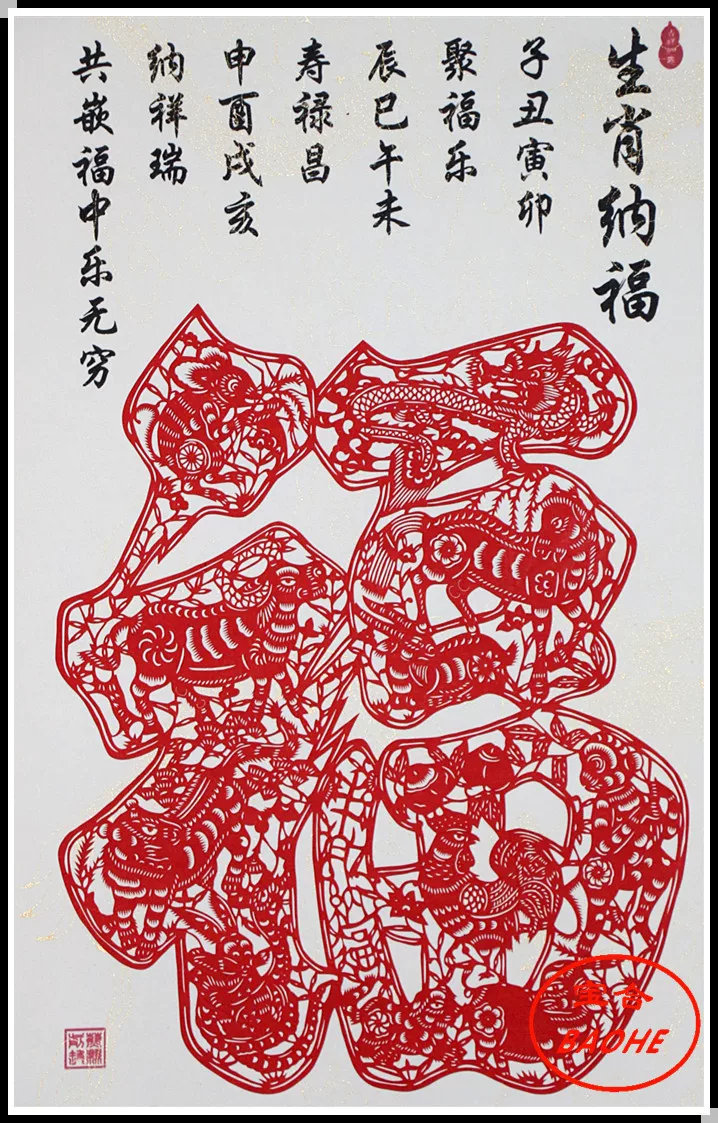 生肖纳福
子丑寅卯
聚福乐
辰巳午未
寿禄昌
申酉戌亥
纳祥瑞
共嵌福中乐无穷
宝合
BAOHE